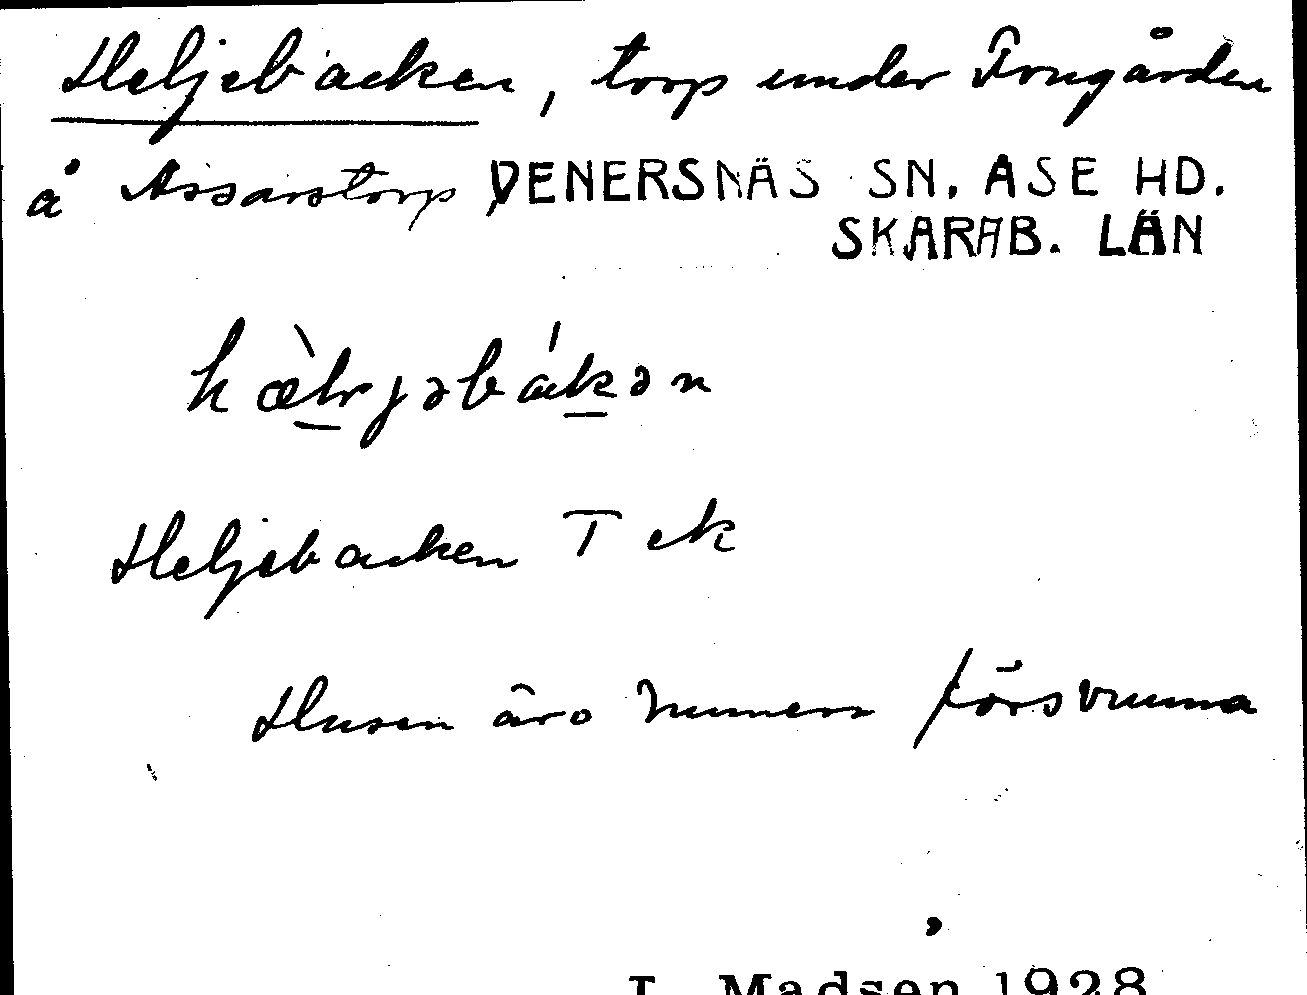 Heljebacken, torp under Frugården
å Assarstorp VENERSNÄS SN. ASE HD.
SKARAB. LÄN
hæ̀ljəbákən
Heljebacken T ek
Husen äro numera försvunna
I. Madsen 1928